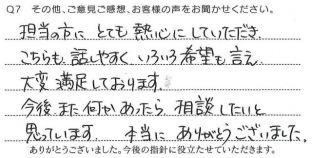 Q7 その他、ご意見ご感想、お客様の声をお聞かせください。
担当の方に とても 熱心に していただき
こちらも 話しやすく いろいろ 希望も 言え
大変 満足しております。
今後 また 何か あったら 相談したいと
思っています。 本当に ありがとうございました。
ありがとうございました。今後の指針に役立たせていただきます。